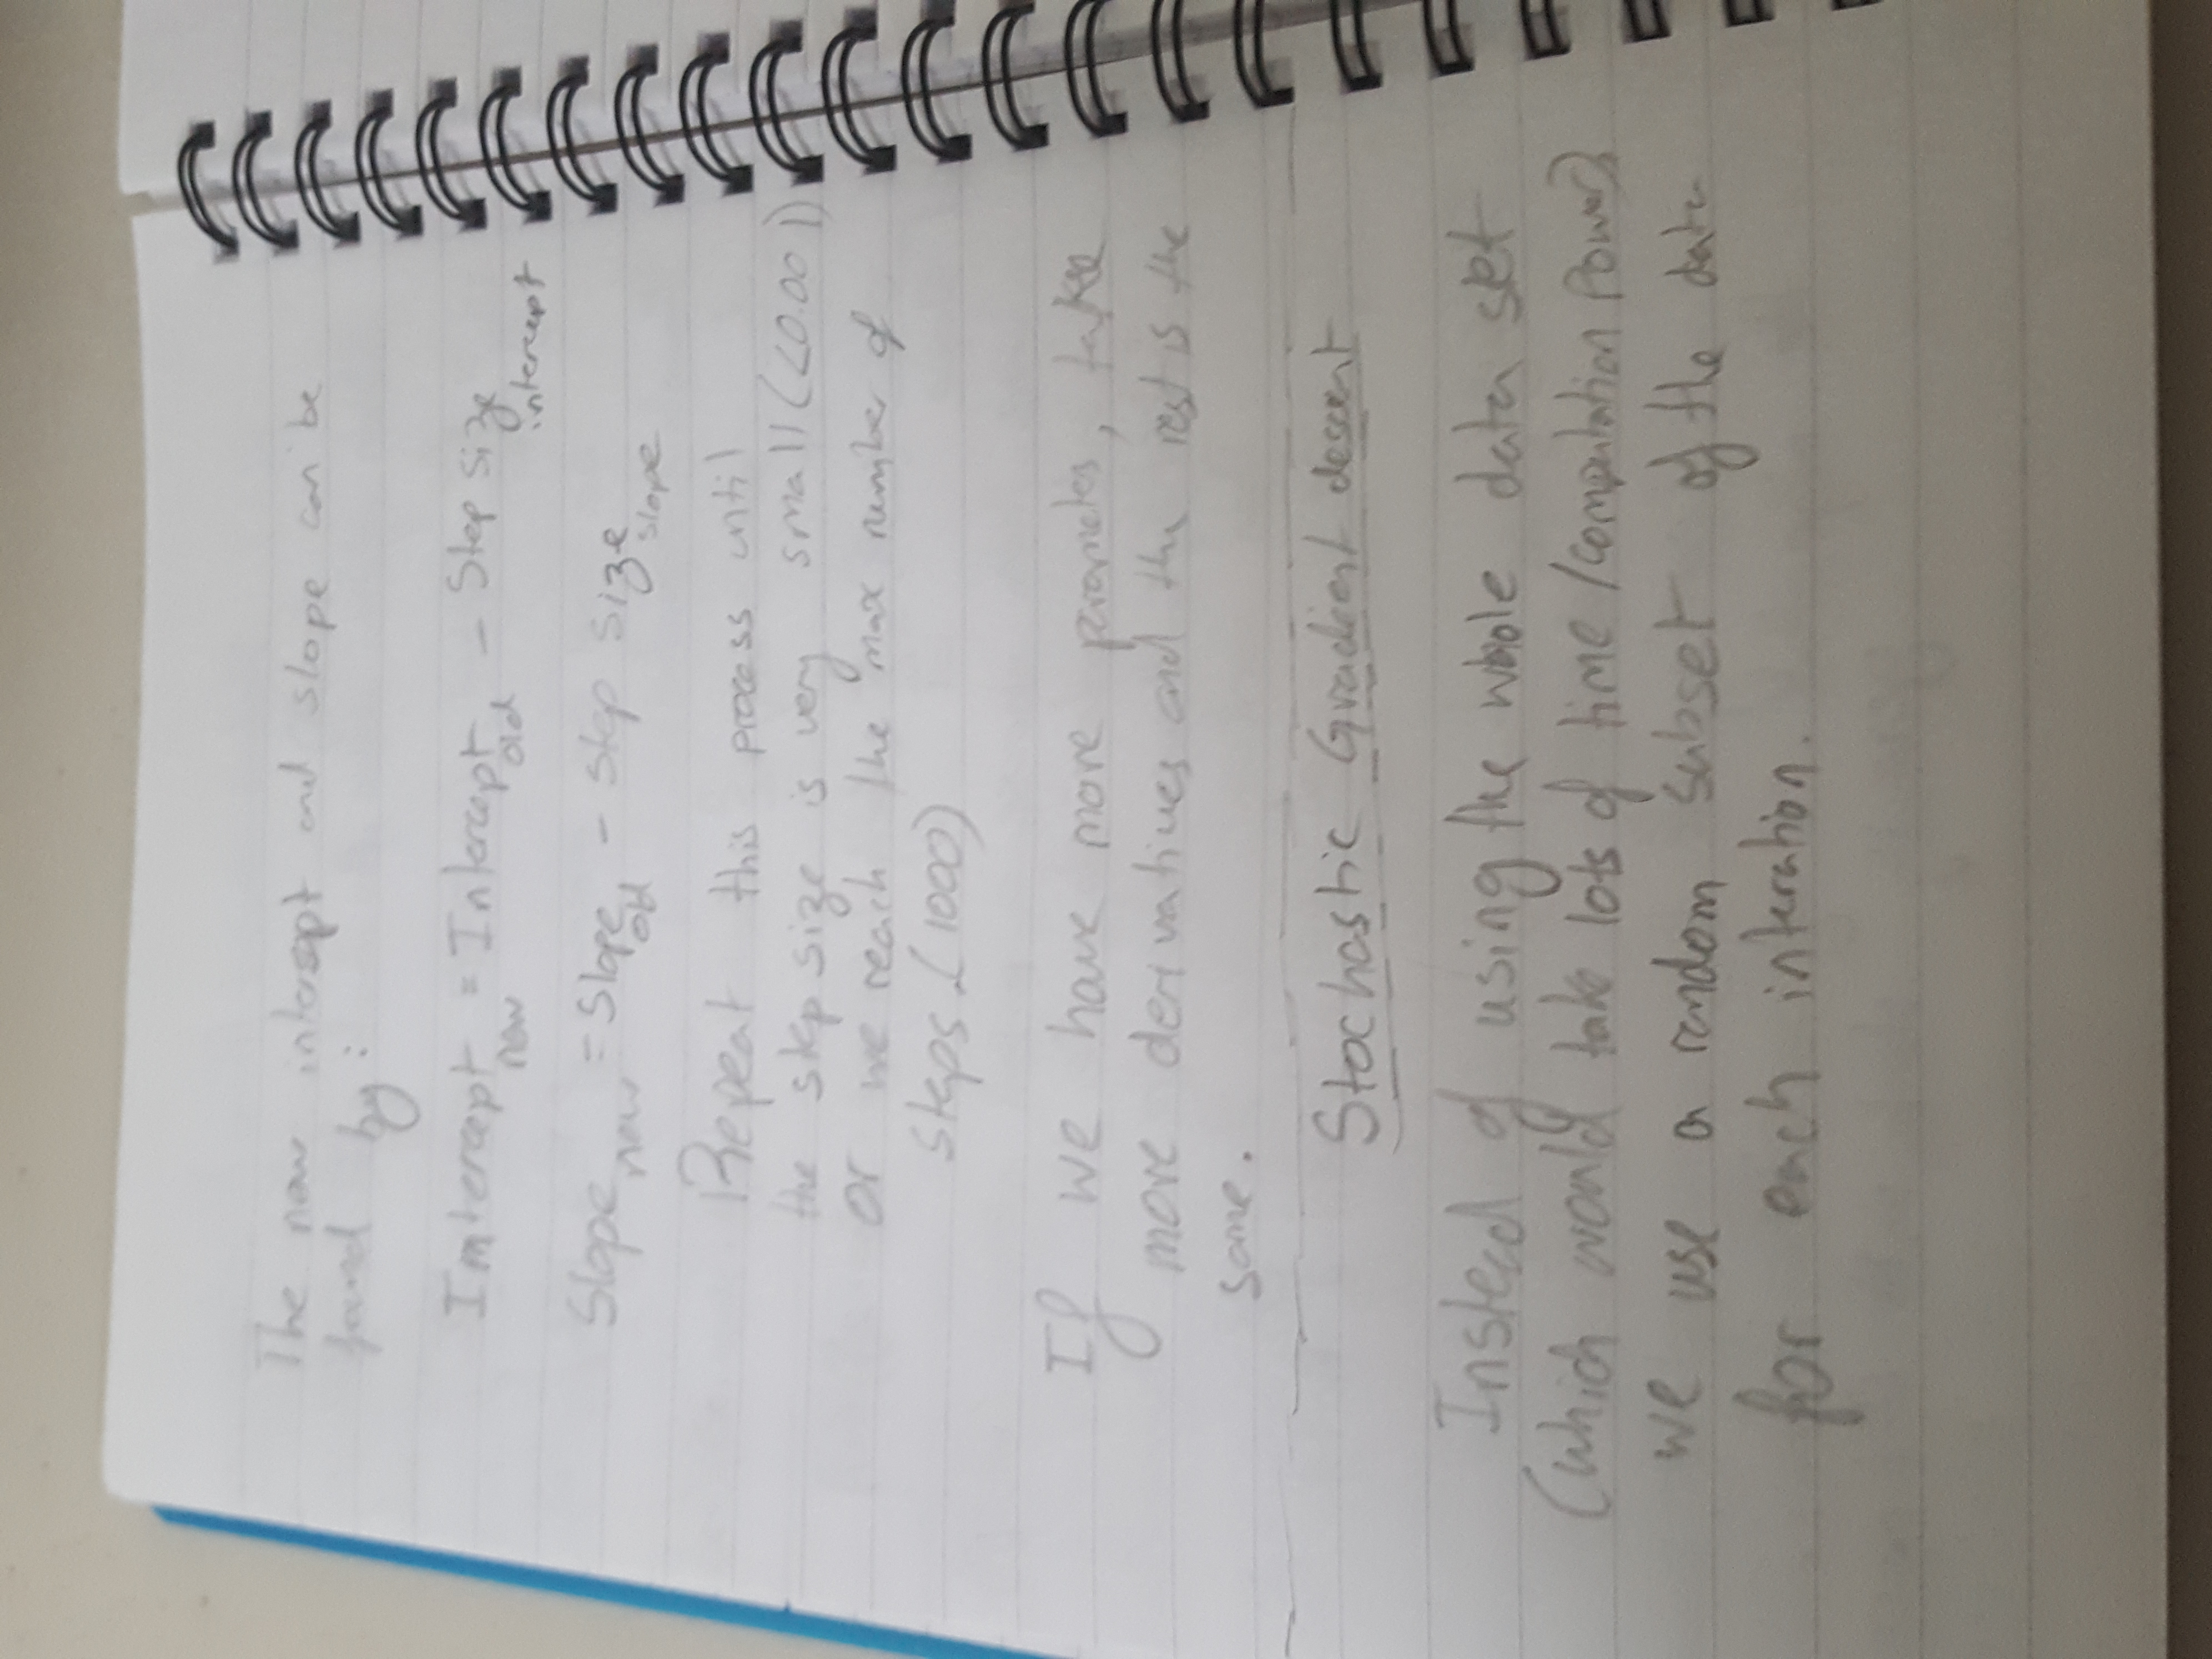 The new intersept and slope can be
found by:
Imtercept new = Intercept old - Step size intercept
Slope new = Slope old - step size slope
Repeat this process until
the step size is very small (<0.001)
or we reach the max number of
steps. (1000)
If we have more parameters, take
more derivatives and the rest is the
same.
Stochastic Gradient descent
Instead of using the whole data set
(which would take lots of time /computation Power)
we use a random subset of the data
for each interation.